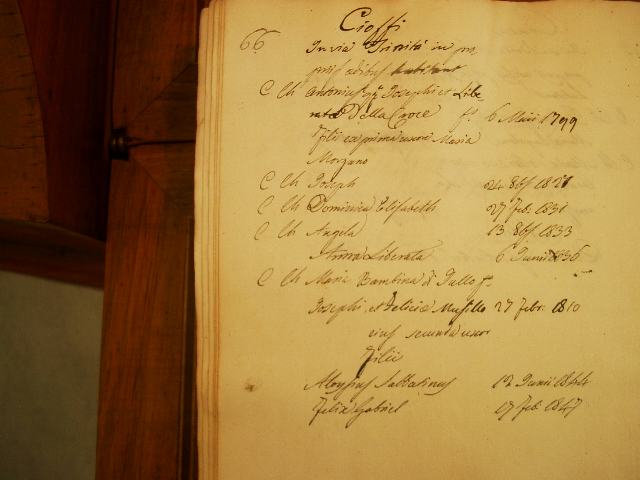 Cioffi
66 In via Trinità in pro
priis edibus habitant
C Ch Antonius qm Josephi et Libe-
rata Della Croce f. 6 Maii 1799
Filii ex prima uxore Maria
Morzano
C Ch Joseph 24 8bris 1828
C Ch Dominica Elisabeth 27 Feb. 1831
C Ch Angela 13 8bris 1833
Anna Liberata 6 Junii 1836
C Ch Maria Bambina di Tullo f.
Josephi et Felicia Musillo 27 Febr. 1810
eius secunda uxor
Filii
Aloysius Sabbatinus 12 Junii 1844
Felix Gabriel 17 Feb. 1847